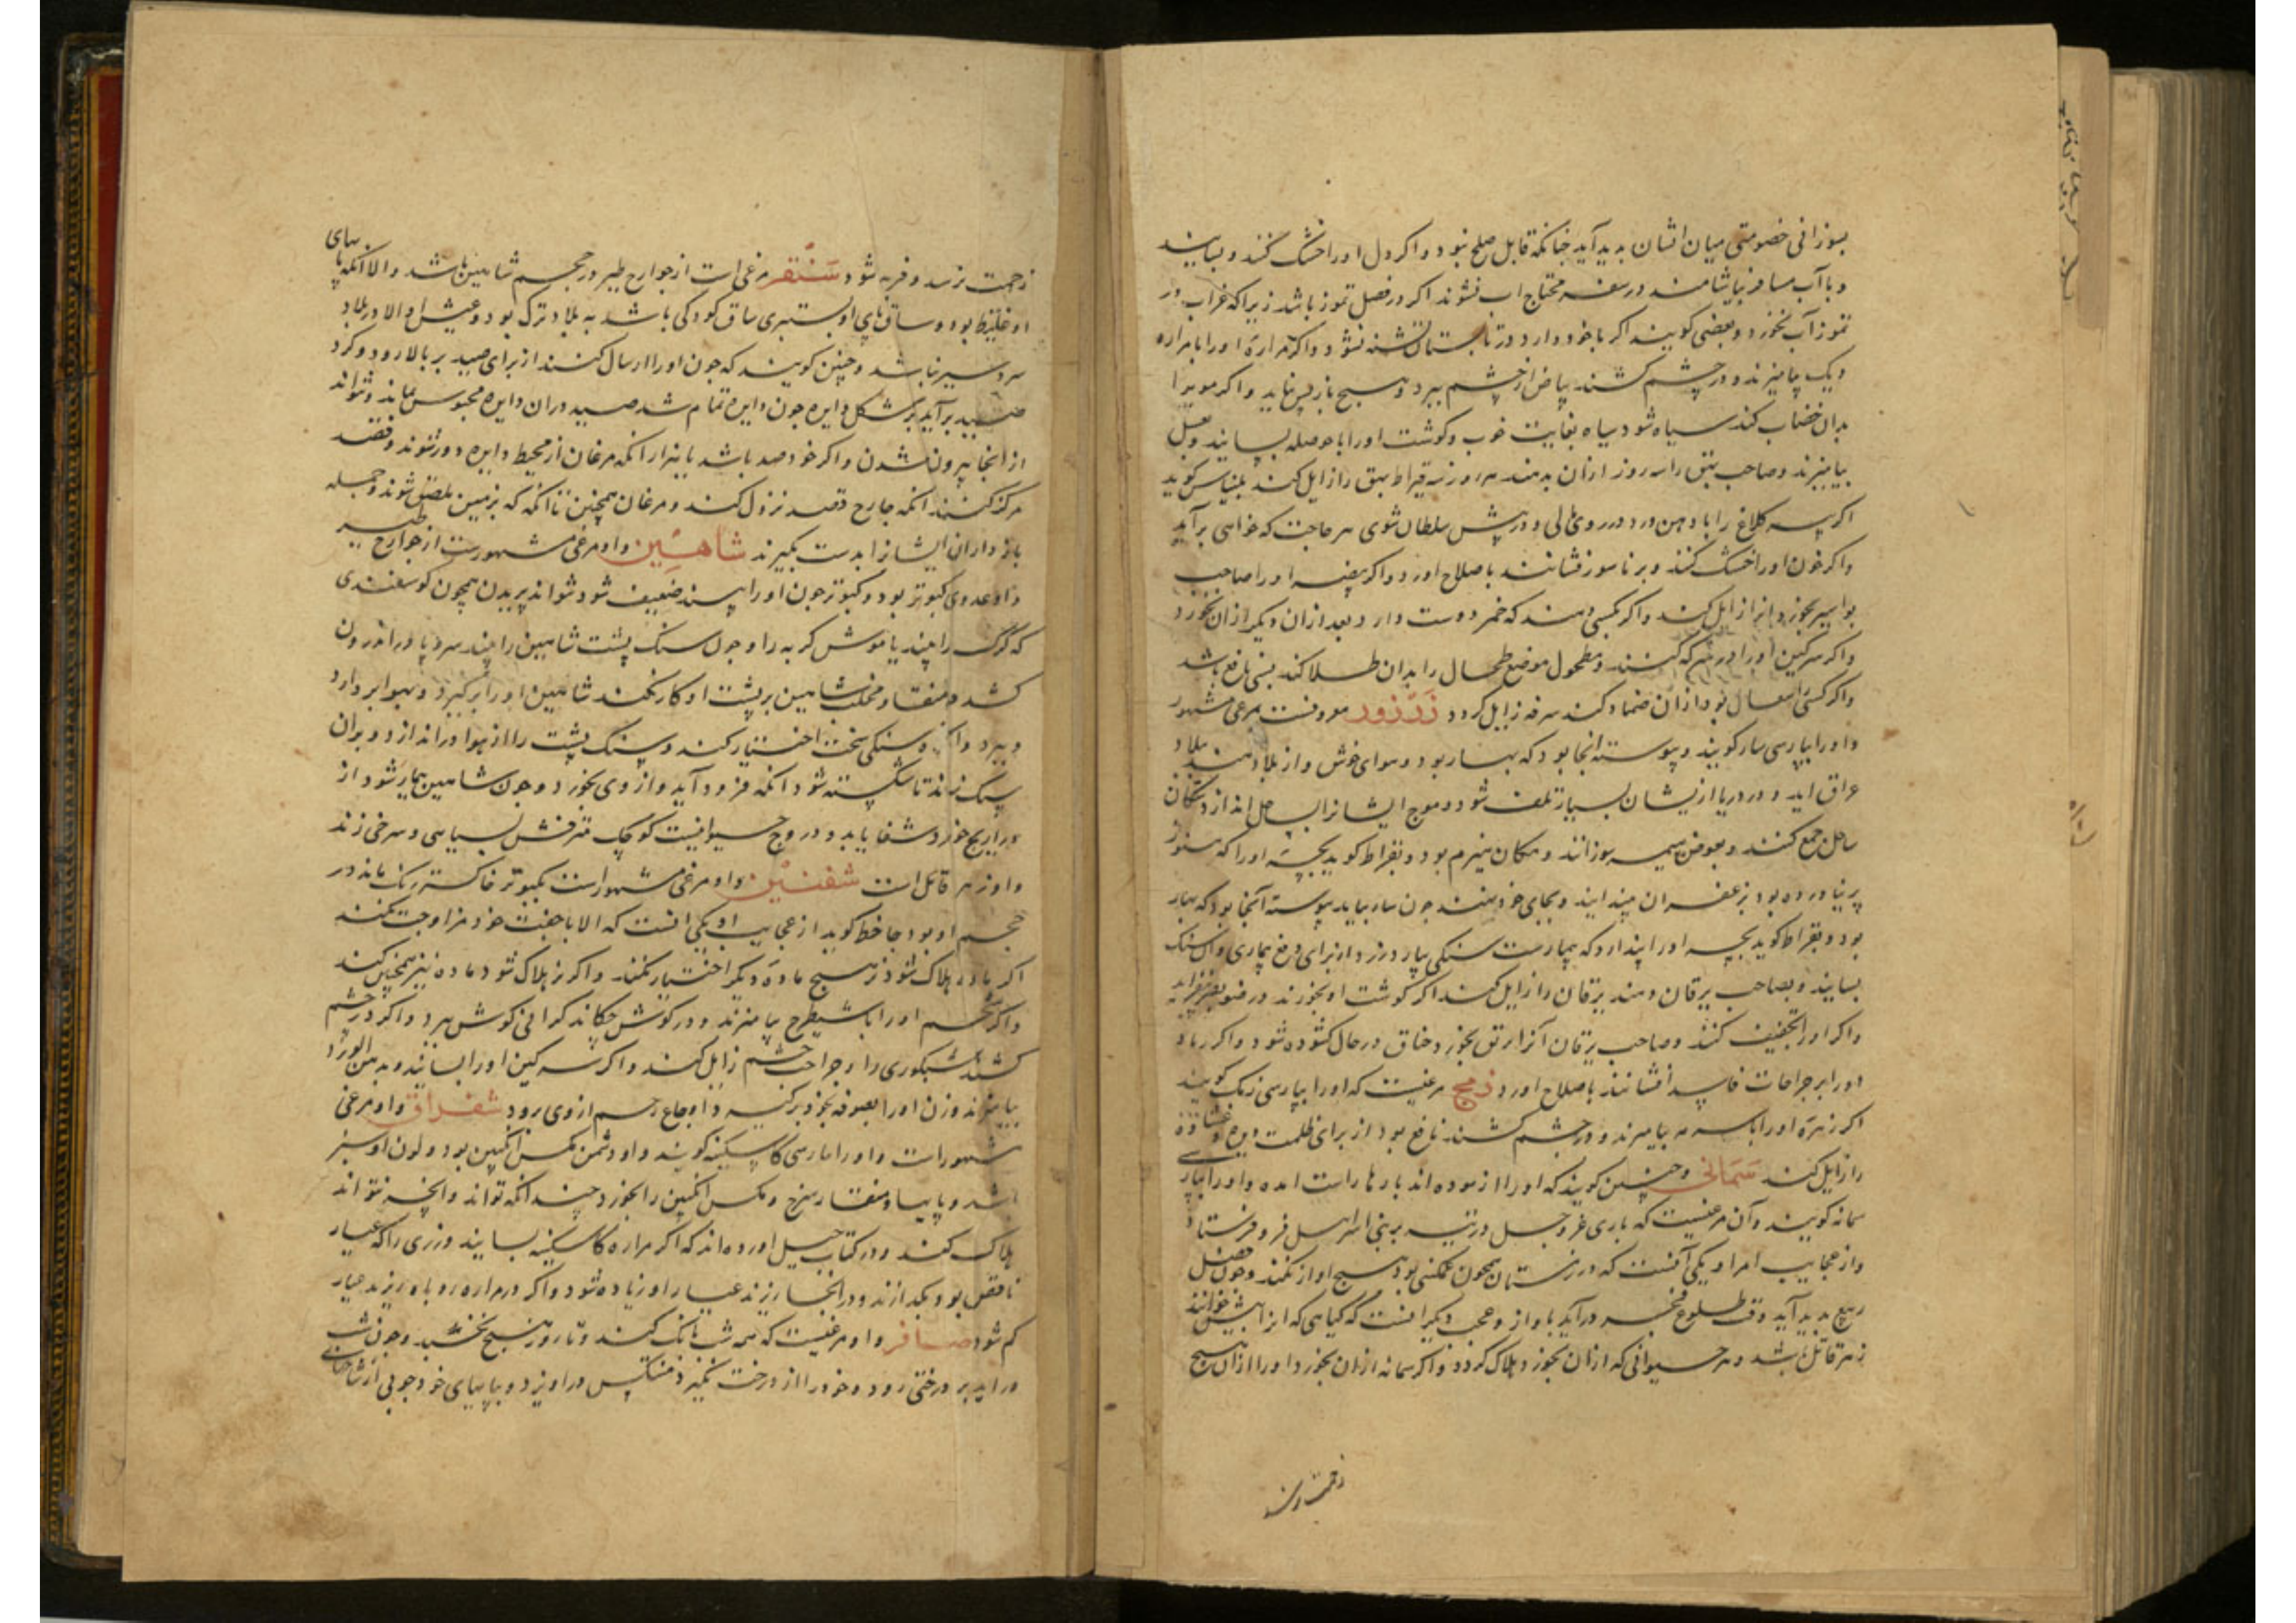 بسوزانی خصومتی میان ایشان بدید آید چنانکه قابل صلح نبود و اکر دل او را خشک کنند و بسایند
و با آب مسافر بیاشامند در سفر محتاج اب نشوند اکر در فصل تموز باشد زیرا که غراب در
تموز آب نخورد و بعضی کویند اکر با خود دارد در تابستان تشنه نشود و اکر مراره او را با مراره
دیک بیامیزند و در چشم کشند بیاض از چشم ببرد و هیچ باز پس نماید و اکر موی را
بدان خضاب کند سیاه شود سیاه بغایت خوب و کوشت او را با حوصله بسایند و بعسل
بیامیزند و صاحب بهق را سه روز ازان بدهند هر روز سه قیراط بهق را زایل کند بلیناس کوید
اکر پیه کلاغ را با دهن ورد در روی مالی و در پیش سلطان شوی هر حاجت که خواهی بر آید
و اکر خون او را خشک کنند و بر ناسور فشانند باصلاح اورد و اکر بیضه او را صاحب
بواسیر بخورد انرا زایل کند و اکر بکسی دهند که خمر دوست دارد بعد ازان دیکر ازان نخورد
و اکر سرکین او را در سرکه کنند و مطحول موضع طحال را بدان طلا کند بسی نافع باشد
و اکر کسی را سعال بود ازان ضماد کند سرفه زایل کردد زرزور معروفست مرغی مشهور
و او را بپارسی سار کویند و پیوسته انجا بود که بهار بود و هوای خوش و از بلاد هند ببلاد
عراق اید و در دریا ازیشان بسیار تلف شود و موج ایشانرا بساحل اندازد سکان
ساحل جمع کنند و بعوض هیمه سوزانند و مکان نیز کرم بود و بقراط کوید بچه او را که هنوز
پر نیاورده بود بزعفران میندایند و بجای خود نهند چون سار بیاید پیوسته آنجا بود که بهار
بود و بقراط کوید بچه او را پندارد که بیمارست سنکی بیارد زرد از برای دفع بیماری و ان سنک
بسایند و بصاحب یرقان دهند یرقان را زایل کند اکر کوشت او بخورند در ضو بصر بیفزاید
و اکر او را تجفیف کنند و صاحب یرقان آنرا بخورد خناق در حال کشوده شود و اکر رماد
او را بر جراحات فاسد افشانند باصلاح اورد زمج مرغیست که او را بپارسی زمک کویند
اکر زهره او را با سرمه بیامیزند و در چشم کشند نافع بود از برای ظلمت دیده و غشاوه
را زایل کند سمانی و چنین کویند که او را ازموده اند بارها راست امده و او را بپارسی
سمانه کویند و آن مرغیست که باری عز و جل در تیه بر بنی اسرائیل فرو فرستاد
و از عجایب امر او یکی آنست که در زمستان همچون غمکنی بود هیچ اواز نکند و چون فصل
ربیع بدید آید وقت طلوع فجر در آید باواز و عجب دیکر انست که کیاهی که انرا بیش خوانند
زهر قاتل باشد و هر حیوانی که ازان بخورد هلاک کردد و اکر سمانه ازان بخورد او را ازان هیچ
زحمت نرسد
زحمت نرسد و فربه شود سنقر مرغی است از جوارح طیر در حجم شاهین باشد و الا انکه پایهای
او غلیظ بود و ساق پای او بستبری ساق کودکی باشد به بلاد ترک بود و عیش او الا در بلاد
سردسیر نباشد و چنین کویند که چون او را ارسال کنند از برای صید بر بالا رود و کرد
صید بر آید بر شکل دایره چون دایره تمام شد صید دران دایره محبوس بماند و نتواند
از انجا بیرون شدن و اکر خود صد باشد یا هزار انکه مرغان از محیط دایره دور شوند و قصد
مرکز کنند انکه جارح قصد نزول کند و مرغان همچنین تا انکه که بزمین ملصق شوند و جمله
بازداران ایشانرا بدست بکیرند شاهین و او مرغی مشهورست از جوارح طیر
و او عدوی کبوتر بود و کبوتر چون او را بیند ضعیف شود نتواند پریدن همچون کوسفندی
که کرک را بیند یا موش کربه را و چون سنک پشت شاهین را بیند سر و پا در اندرون
کشد و منقار و مخلب شاهین بر پشت او کار نکند شاهین او را بر کیرد و بهوا بر دارد
و ببرد و سنکی سخت اختیار کند و سنک پشت را از هوا در اندازد و بران
سنک زند تا شکسته شود انکه فرود آید و از وی بخورد و چون شاهین بیمار شود از
خورد شفا یابد و دروج حیوانیست کوچک منقش بسیاهی و سرخی زند
و او زهر قاتل است شفنین و او مرغی مشهورست بکبوتر خاکستر رنک ماند در
حجم او بود جاحظ کوید از عجایب او یکی انست که الا با جفت خود مزاوجت نکند
اکر ماده هلاک شود نر هیچ ماده دیکر اختیار نکند و اکر نر هلاک شود ماده نیز همچنین کند
و اکر شحم او را با شیطرج بیامیزند و در کوش چکاند کرانی کوش ببرد و اکر در چشم
کشند شبکوری را و جراحت چشم زایل کند و اکر سرکین او را بسایند و بدهن الورد
بیامیزند و زن او را بصوفه بخود بر کیرد اوجاع رحم از وی رود شقراق و او مرغی
مشهورات و او را بپارسی کاسکینه کویند و او دشمن مکس انکبین بود و لون او سبز
باشد و پایها و منقار سرخ و مکس انکبین را بخورد چندانکه تواند و انچه نتواند
هلاک کند و در کتاب حیل اورده اند که اکر مراره کاسکینه بسایند و زری را که عیار
ناقص بود بکدازند و در انجا ریزند عیار او زیاده شود و اکر در مراره روباه ریزند عیار
کم شود صافر و او مرغیست که همه شب بانک کند و تا روز هیچ نخسبد و چون شب
در اید بر درختی رود و خود را از درخت منتکس در اویزد و بپایهای خود چوبی از شاخهای